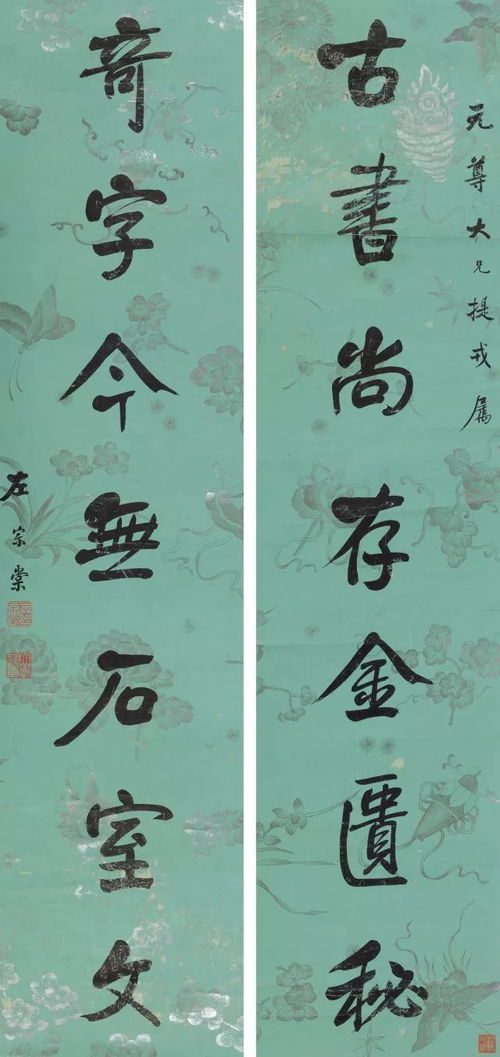 无尊大兄提戎属
古書尚存金匱秘
奇字今無石室文
左宗棠